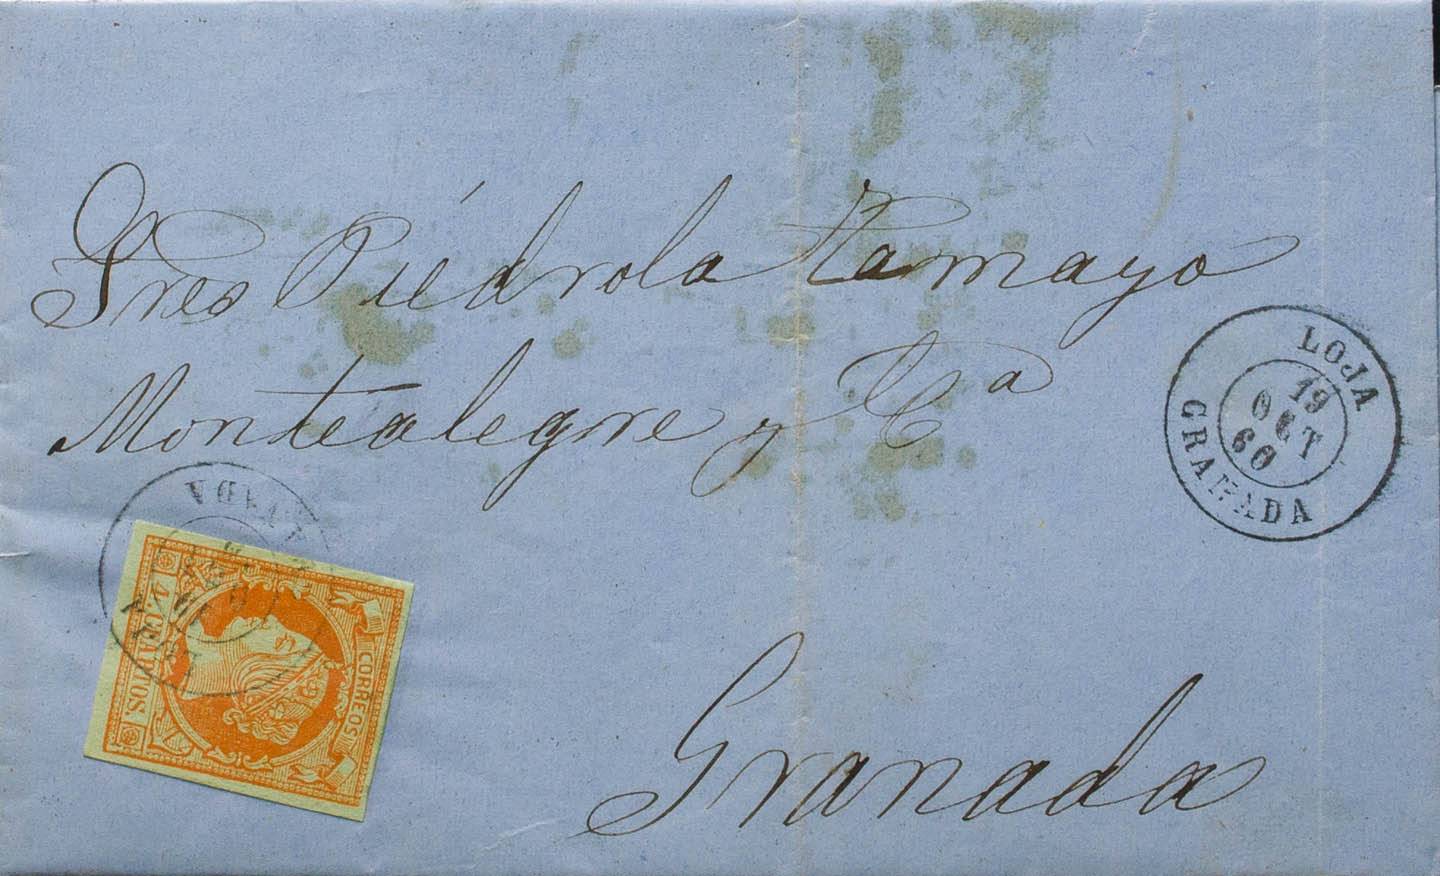 Sres Piédrola Tamayo
Montealegre y Cª
LOJA
19
OCT
60
GRANADA
4. CUARTOS.
CORREOS
LOJA
GRANADA
Granada